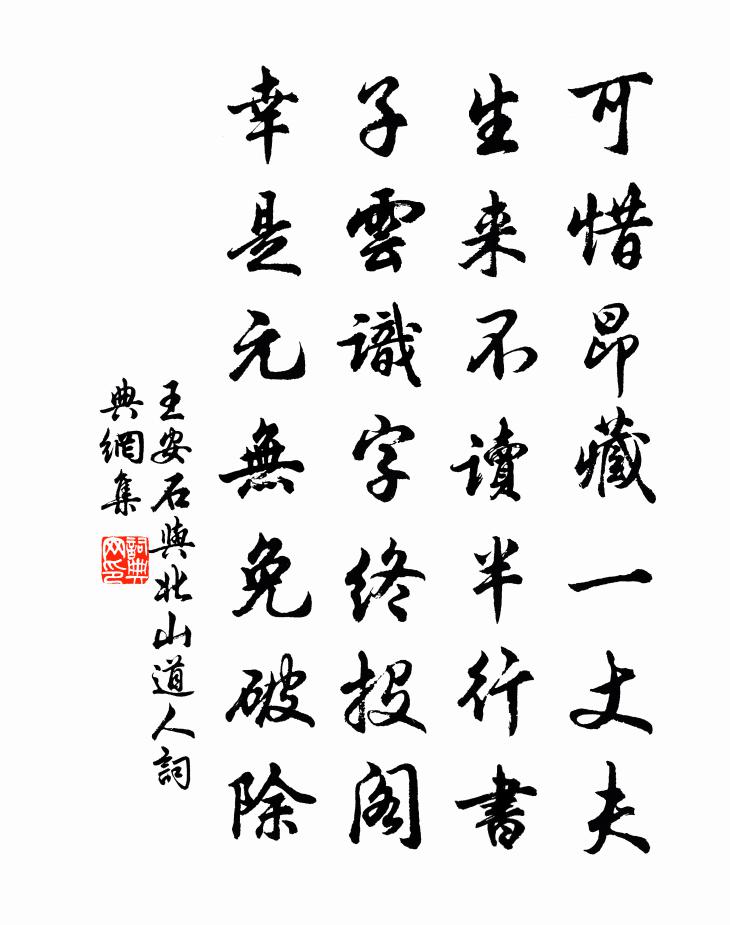 可惜昂藏一丈夫
生来不讀半行書
子雲識字終投阁
幸是元無免破除
王安石與北山道人詞
典網集
詞典
网印